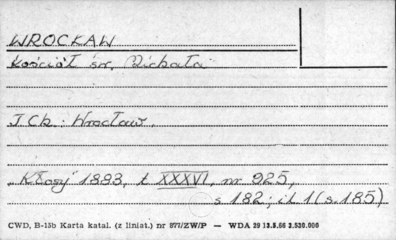 WROCŁAW
Kościół św. Michała
J Ch: Wrocław.
„Kłosy" 1883, t XXXVI, nr 925,
s 182; il 1 (s. 185)
CWD, B-15b Karta katal. (z liniat.) nr 877/ZW/P — WDA 29 13.5.66 2.530.000